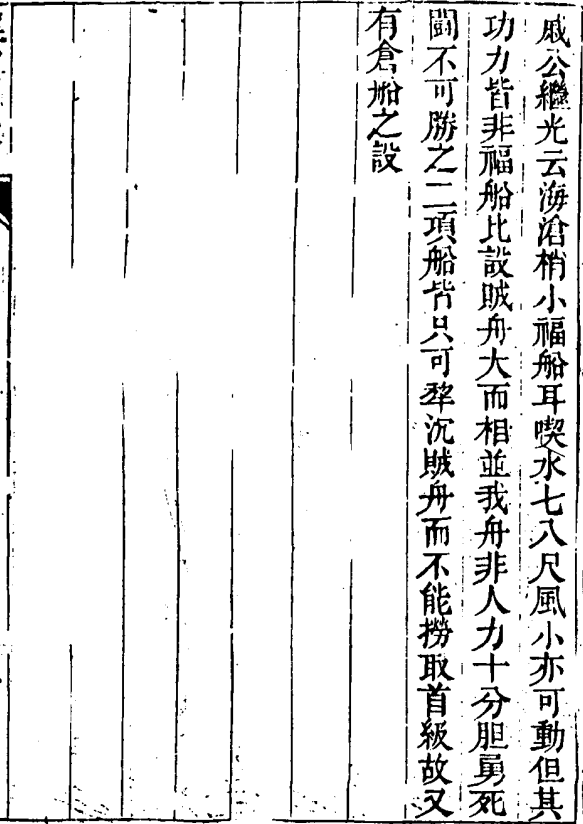 戚公繼光云海滄梢小福船耳喫水七八尺風小亦可動但其
功力皆非福船比設賊舟大而相並我舟非人力十分胆勇死
鬪不可勝之二項船皆只可犂沉賊舟而不能撈取首級故又
有倉船之設